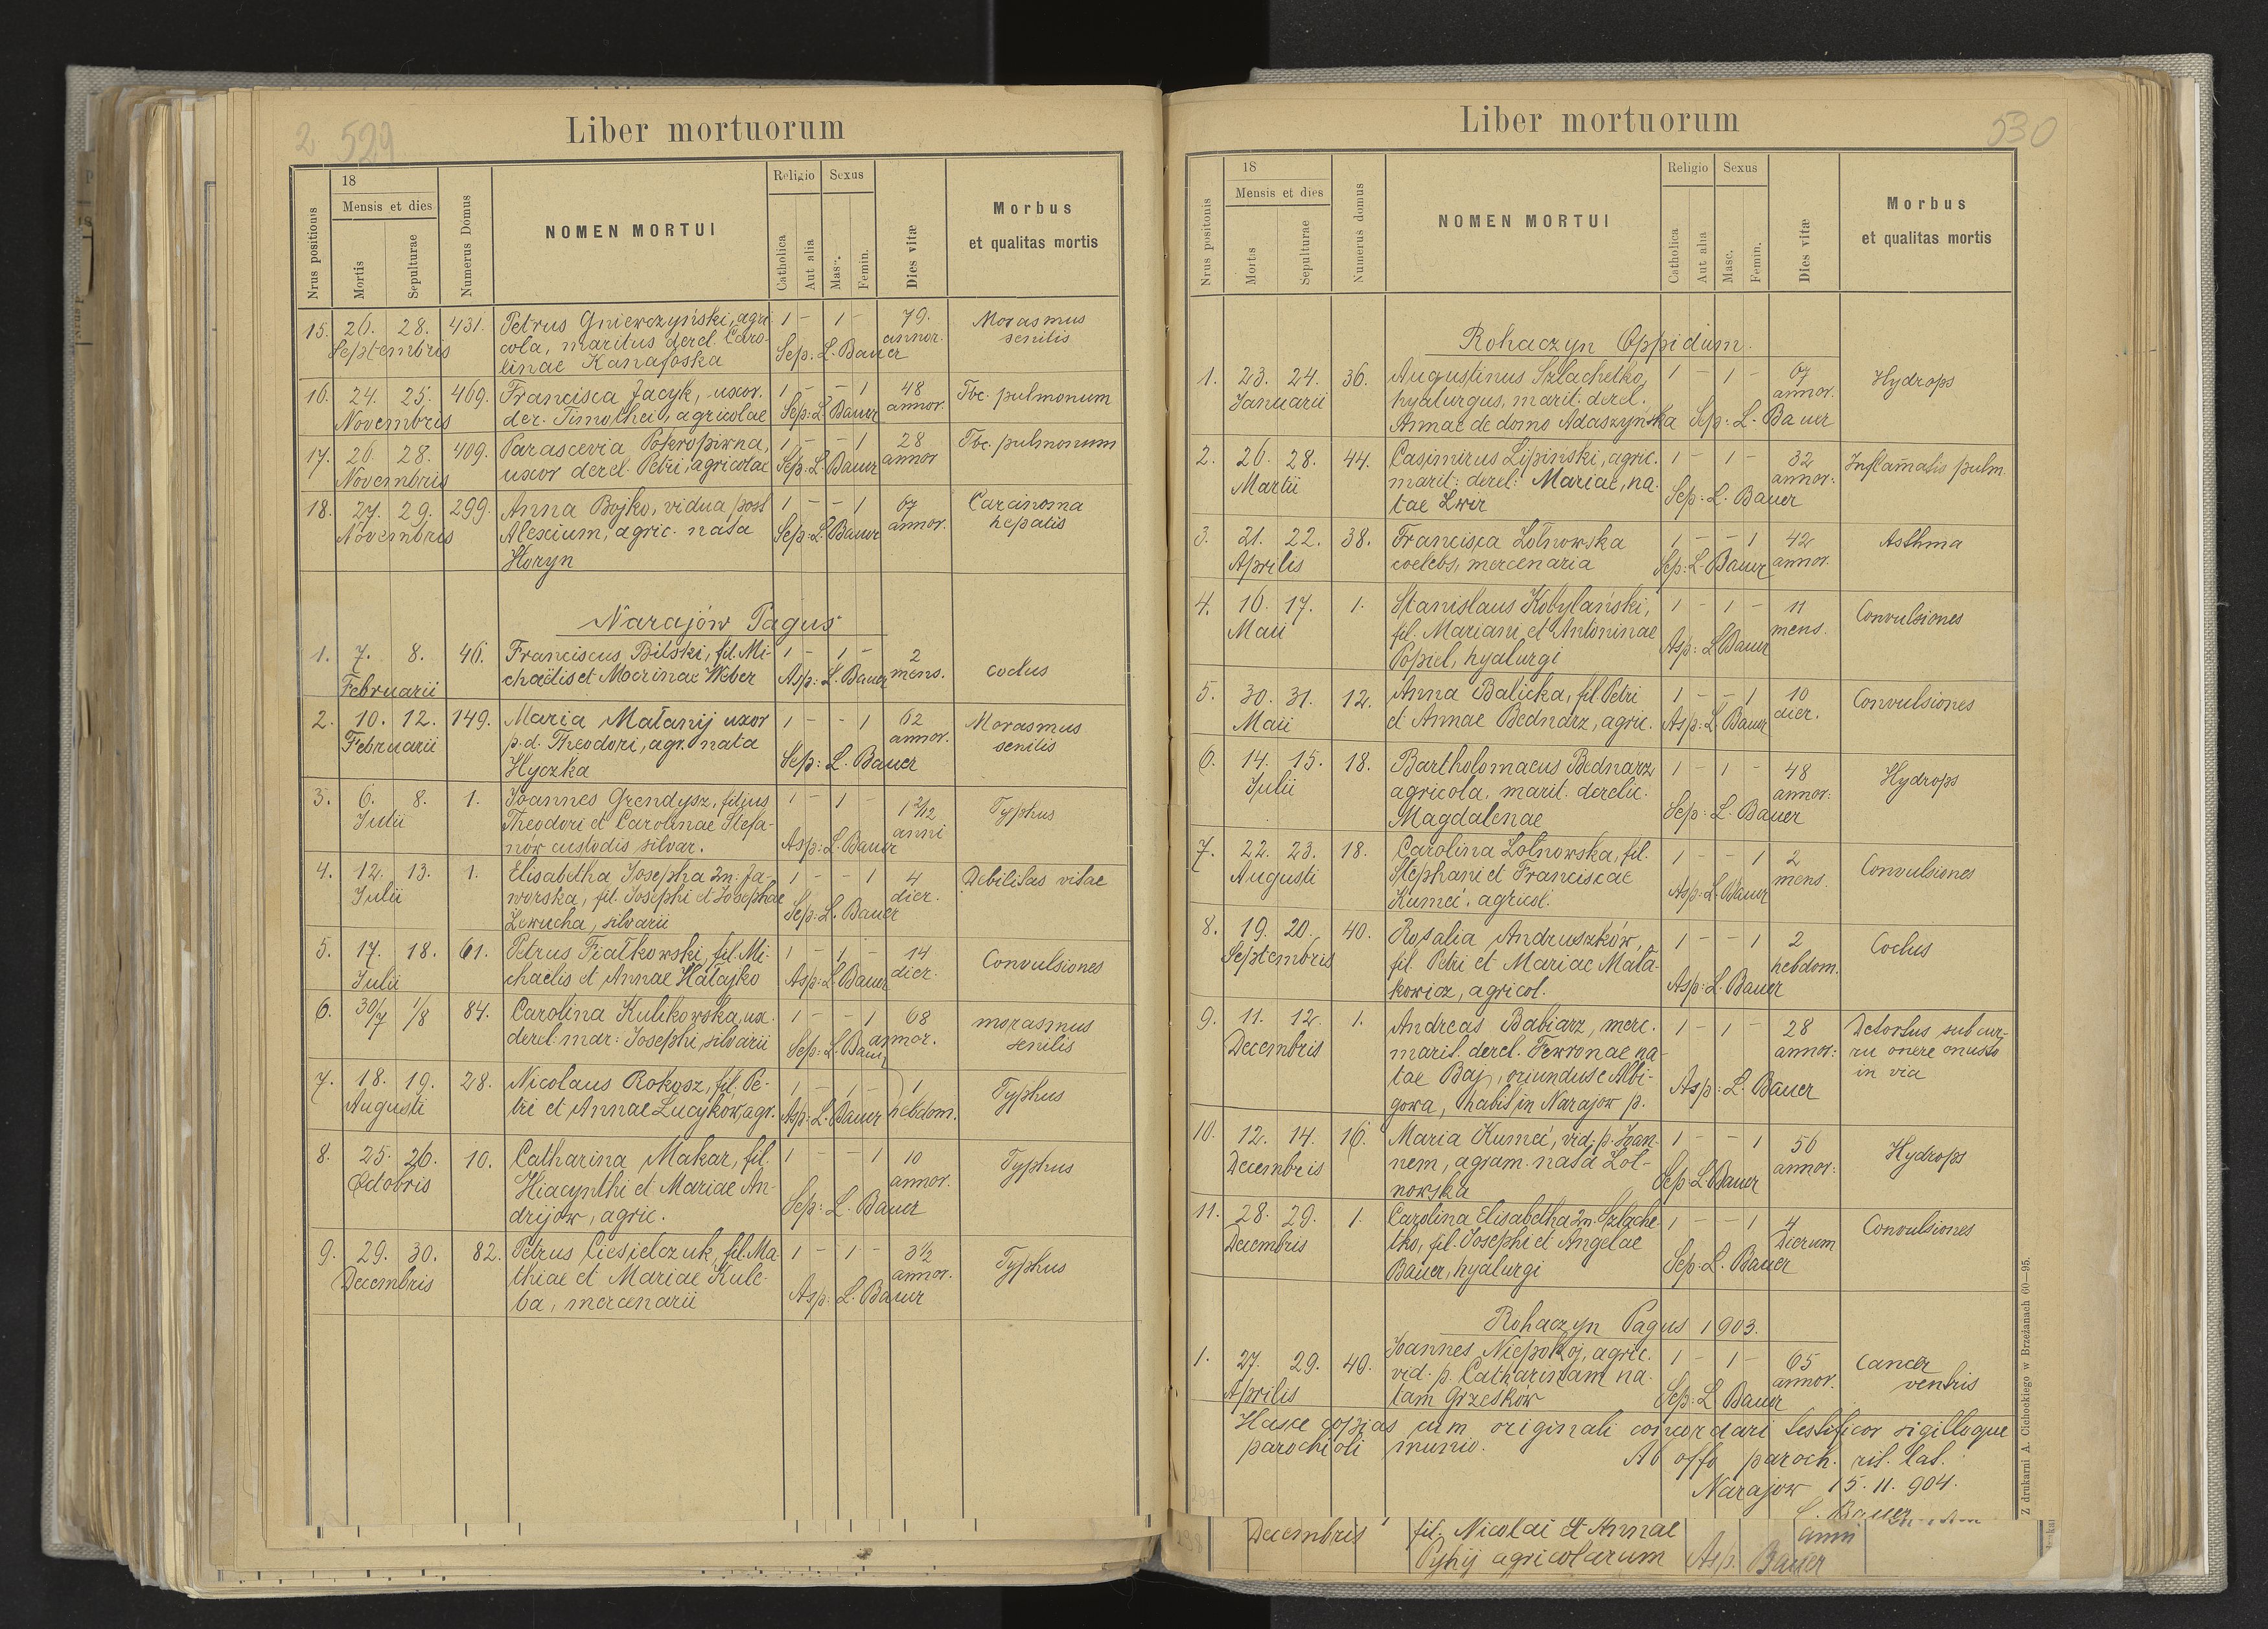 2 529
Liber mortuorum
Nrus positionis
18
Mensis et dies
Mortis
Sepulturae
Numerus Domus
NOMEN MORTUI
Religio
Catholica
Aut alia
Sexus
Masc.
Femin.
Dies vitæ
Morbus
et qualitas mortis
15. 26. 28. 431. Petrus Gniewczyński, agri- 1 - 1 - 79. Morasmus
Septembris cola, maritus derel. Caro- annor. senilis
linae Kanafoska Sep: L. Bauer
16. 24. 25. 469. Francisca Jacyk, uxor. 1 - - 1 48 Tbc. pulmonum
Novembris der. Timothei, agricolae Sep: L. Bauer annor.
17. 26. 28. 409. Parascevia Pokropiwna, 1 - - 1 28 Tbc. pulmonum
Novembris uxor derel. Petri, agricolae Sep: L. Bauer annor
18. 27. 29. 299. Anna Bojko, vidua post 1 - - 1 67 Carcinoma
Novembris Alexium, agric. nata Sep: L. Bauer annor. hepatis
Horyn
Narajów Pagus
1. 7. 8. 46. Franciscus Bilski, fil. Mi- 1 - 1 - 2 coctus
Februarii chaëlis et Macrinae Weber Asp: L. Bauer mens.
2. 10. 12. 149. Maria Małanij uxor 1 - - 1 62 Morasmus
Februarii p. d. Theodori, agr. nata annor. senilis
Hyczka Sep: L. Bauer
3. 6. 8. 1. Joannes Grendysz, filius 1 - 1 - 1 2/12 Typhus
Julii Theodori et Carolinae Stefa- anni
nów custodis silvar. Asp: L. Bauer
4. 12. 13. 1. Elisabetha Josepha 2n. Ja- 1 - - 1 4 Debilitas vitae
Julii worska, fil. Josephi et Josephae dier.
Lewucha, silvarii Sep: L. Bauer
5. 17. 18. 61. Petrus Fiałkowski, fil. Mi- 1 - 1 - 14 Convulsiones
Julii chaelis et Annae Hałajko Asp: L. Bauer dier.
6. 30/7 1/8 84. Carolina Kulikowska, ux. 1 - - 1 68 morasmus
derel. mar: Josephi, silvarii Sep: L. Bauer annor. senilis
7. 18. 19. 28. Nicolaus Rokosz, fil. Pe- 1 - 1 - 1 Typhus
Augusti tri et Annae Lucyków, agr. Asp: L. Bauer hebdom.
8. 25. 26. 10. Catharina Makar, fil. 1 - - 1 10 Typhus
Octobris Hiacynthi et Mariae An- annor.
drijow, agric. Sep: L. Bauer
9. 29. 30. 82. Petrus Ciesielczuk, fil. Ma- 1 - 1 - 3 1/2 Typhus
Decembris thiae et Mariae Kule- annor.
ba, mercenarii Asp: L. Bauer
Liber mortuorum
530
Nrus positionis
18
Mensis et dies
Mortus
Sepulturae
Numerus domus
NOMEN MORTUI
Religio
Catholica
Aut alia
Sexus
Masc.
Femin.
Dies vitæ
Morbus
et qualitas mortis
Rohaczyn Oppidum.
1. 23. 24. 36. Augustinus Szlachetko, 1 - 1 - 67 Hydrops
Januarii hyalurgus, marit. derel. annor.
Annae de domo Adaszyńska Sep: L. Bauer
2. 26. 28. 44. Casimirus Lipiński, agric. 1 - 1 - 32 Inflam̄atio pulm.
Martii marit: derel: Mariae, na- annor.
tae Lwir Sep: L. Bauer
3. 21. 22. 38. Francisca Lolnowska 1 - - 1 42 Asthma
Aprilis coelebs, mercenaria Sep: L. Bauer annor.
4. 16. 17. 1. Stanislaus Kobylański, 1 - 1 - 11 Convulsiones
Maii fil. Mariani et Antoninae mens.
Popiel, hyalurgi Asp: L. Bauer
5. 30. 31. 12. Anna Balicka, fil. Petri 1 - - 1 10 Convulsiones
Maii et Annae Bednarz, agric. Asp: L. Bauer dier.
6. 14. 15. 18. Bartholomaeus Bednarz 1 - 1 - 48 Hydrops
Julii agricola, marit. derelic. annor:
Magdalenae Sep: L. Bauer
7. 22. 23. 18. Carolina Lolnowska, fil. 1 - - 1 2 Convulsiones
Augusti Stephani et Franciscae mens.
Kumeć, agricol. Asp: L. Bauer
8. 19. 20. 40. Rosalia Andruszków, 1 - - 1 2 Coctus
Septembris fil. Petri et Mariae Mała- hebdom.
kowicz, agricol. Asp: L. Bauer
9. 11. 12. 1. Andreas Babiarz, merc. 1 - 1 - 28 Detortus sub cur-
Decembris marit. derel. Fewronae na- annor: ru onere onusto
tae Baj, oriundus e Albi- in via
gowa, habit. in Narajow p. Asp: L. Bauer
10. 12. 14. 16. Maria Kumeć, vid. p. Joan- 1 - - 1 56 Hydrops
Decembris nem, agram. nata Lol- annor:
nowska Sep L. Bauer
11. 28. 29. 1. Carolina Elisabetha 2n. Szlache- 1 - - 1 4 Convulsiones
Decembris tko, fil. Josephi et Angelae Dierum
Bauer, hyalurgi Sep. L. Bauer
Rohaczyn Pagus 1903.
1. 27. 29. 49. Joannes Niepokój, agric. 1 - 1 - 65 Cancer
Aprilis vid. p. Catharinam na- annor. ventris
tam Grzesków Sep: L. Bauer
Hasce copias cum originali concordari testificor sigilloque
parochioli munio.
Ab offo paroch. rit. lat.
Narajow 15. 11. 904.
L. Bauer
Z drukarni A. Cichockiego w Brzeżanach 60—95.
Decembris fil. Nicolai et Annae anni
Pyhij agricolarum Asp. Bauer